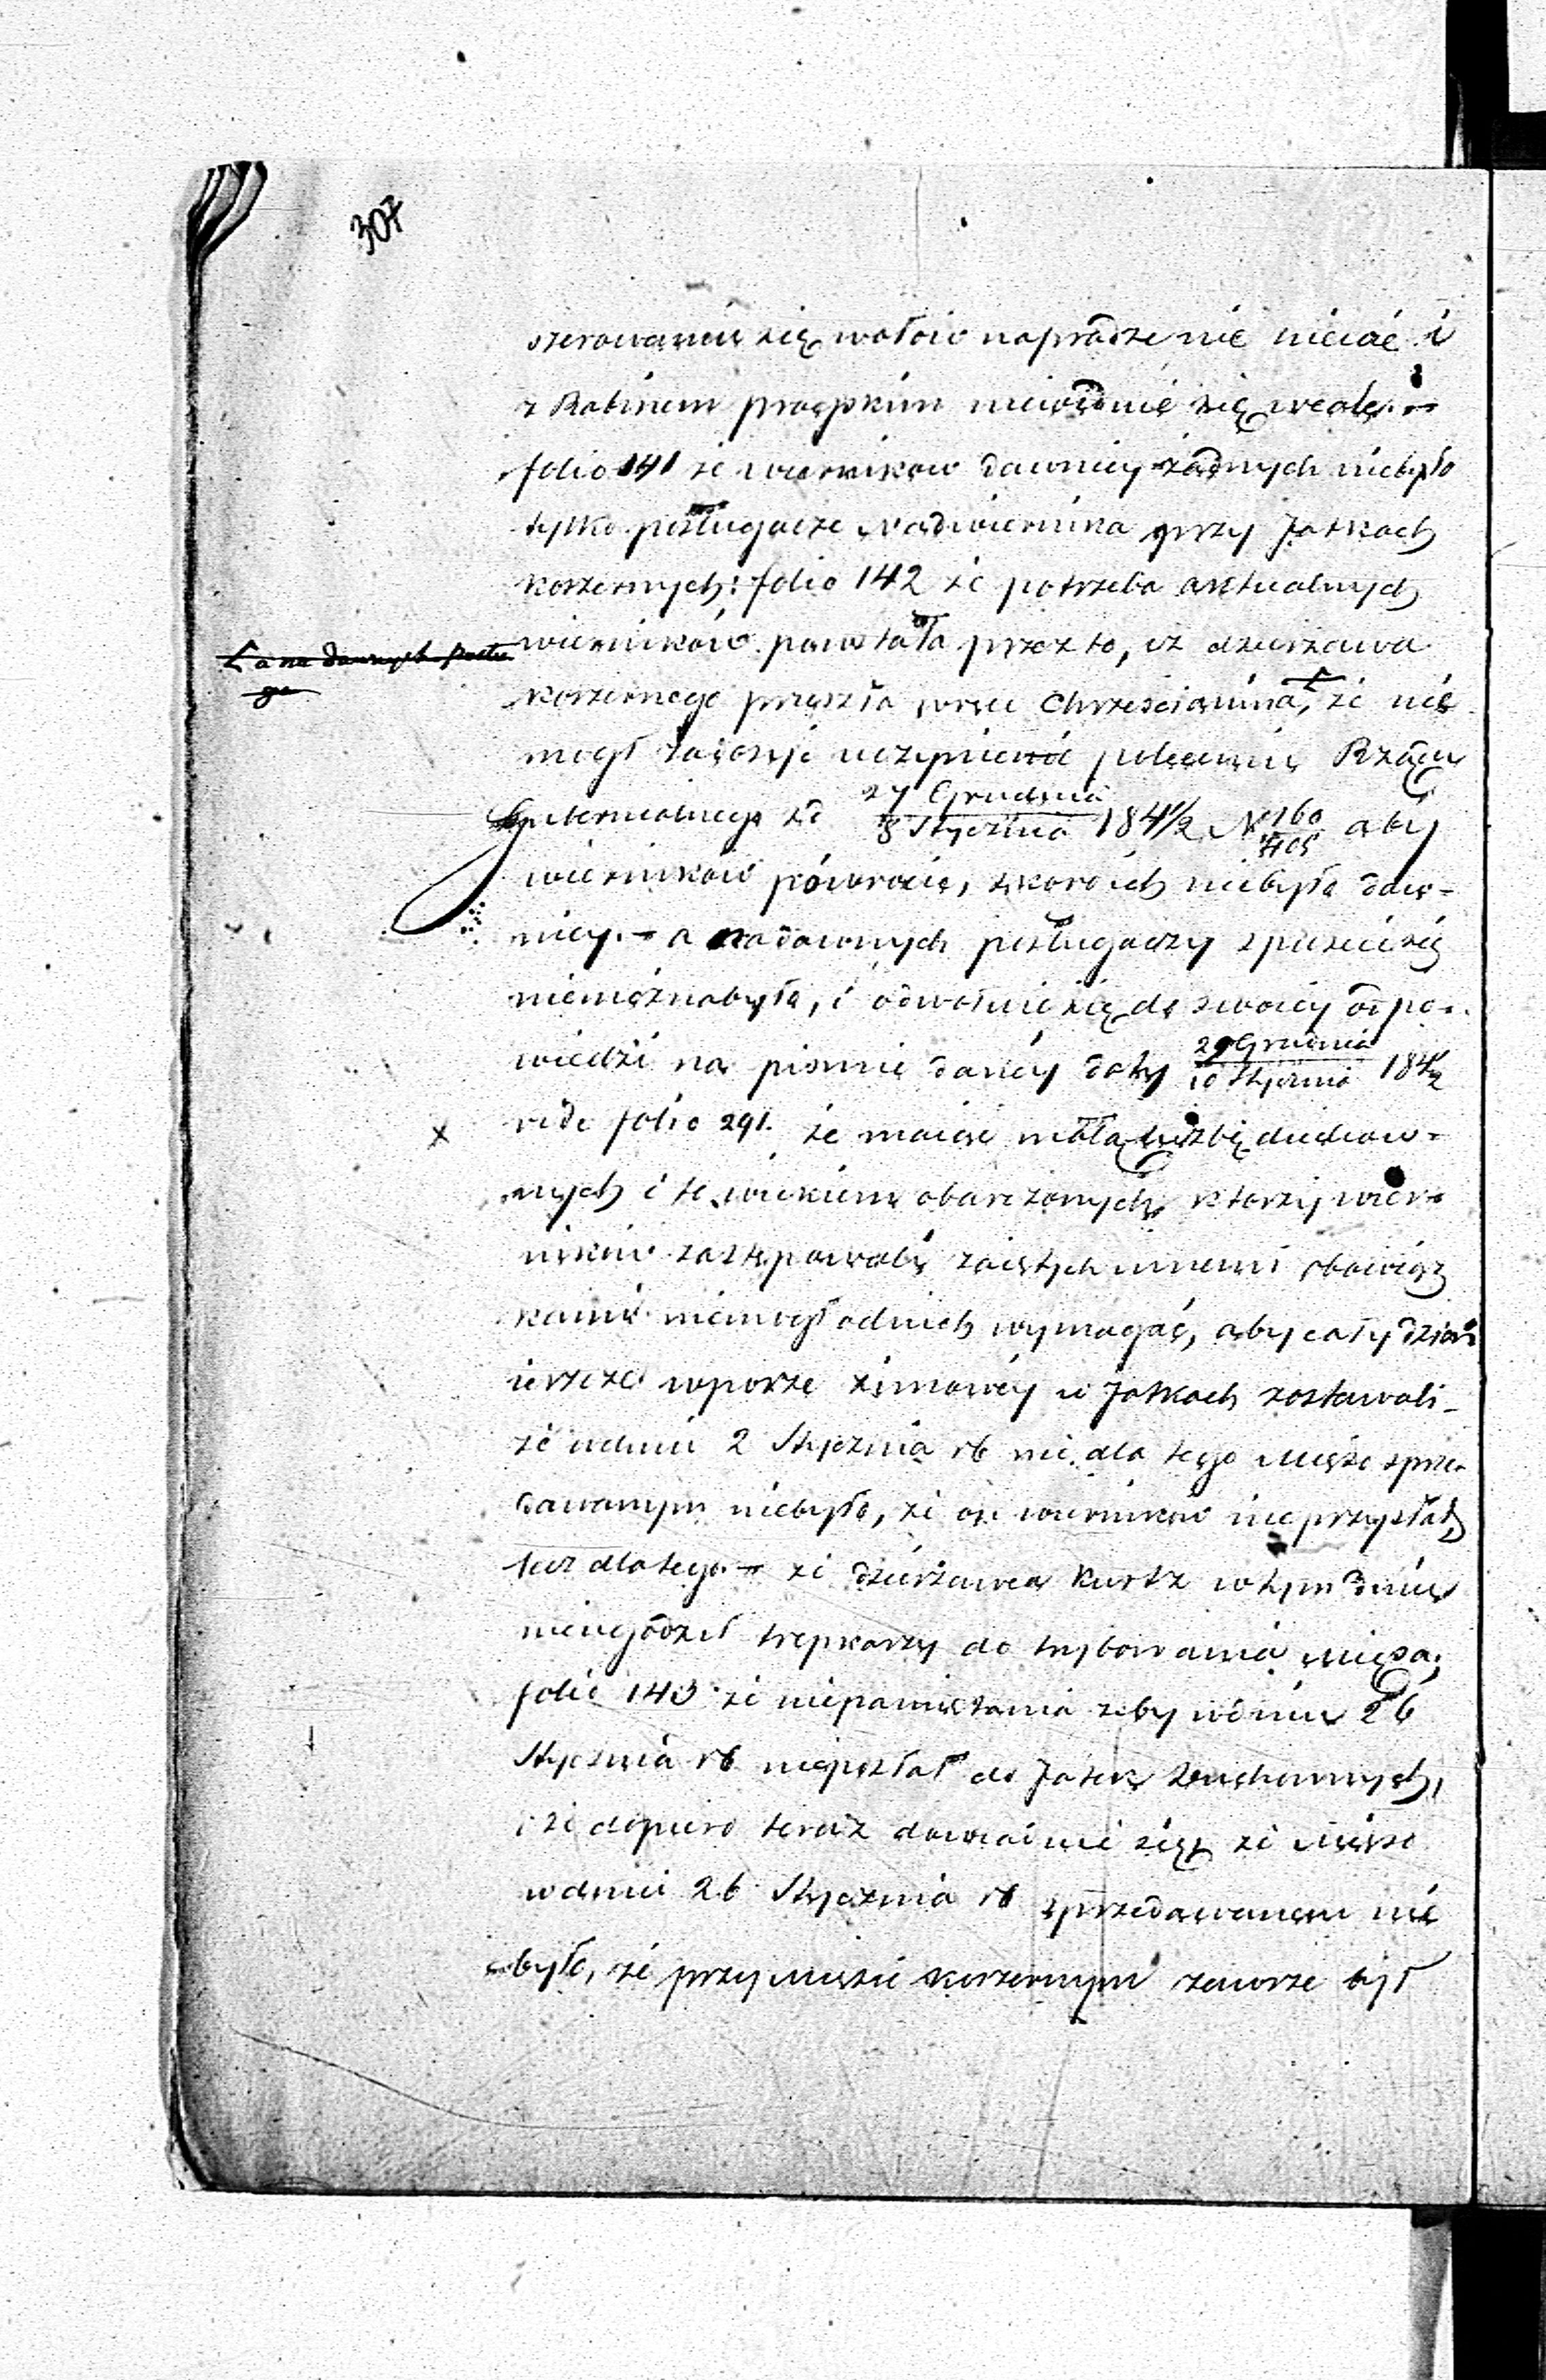 307
szerowaniu się wołów na prodze nie nieiać i
z Rabinem praskim niewidnie się wcale. –
folio 141 że wierników dawniey żadnych niebyło
tylko posługacze Nadwiernika przy Jatkach
koszernych: folio 142 że potrzeba aktualnych
wierników powstała przez to, iż dzierzawa
koszernego przeszła wręce Chrześcianina, że nie
mogł zadosyć uczynić poleceniu Rządu
Gubernialnego zd 27 Grudnia / 8 Stycznia 184½ N 160 aby
wierników powrocić, skoro ich niebyło daw-
niey. – a na dawnych posługaczy spuścić się
niemożna było, i odwołuie się do swoiey odpo-
wiedzi na pismie daney daty 29 Grudnia / 10 Stycznia 184½
vide folio 291. że maiąc małą liczbę duchow-
nych i te wiekiem obarczonych, ktorzy wier-
ników zastępowali zaiętych innemi obowiąz
kami niemogł odnich wymagać, aby cały dzień
ieszcze wporze zimowéy w Jatkach zostawali –
że wdniu 2 Stycznia rb nie dla tego Mięso sprze-
dawanym niebyło, że on wierników nieprzysłał,
lecz dlatego – że dzierżawca Kurtz wtym dniu
nieugodził trepkarzy do trybowania mięsa;
folio 143 że niepamięta żeby wdniu 26
Stycznia rb nieposłał do Jatek Duchownych,
i że dopiero teraz dowiaduie się, że Mięso
wdniu 26 Stycznia rb sprzedawanem nie
było, że przy mięsie koszernym zawsze był
Ł a na dawnych posłu
ga
x